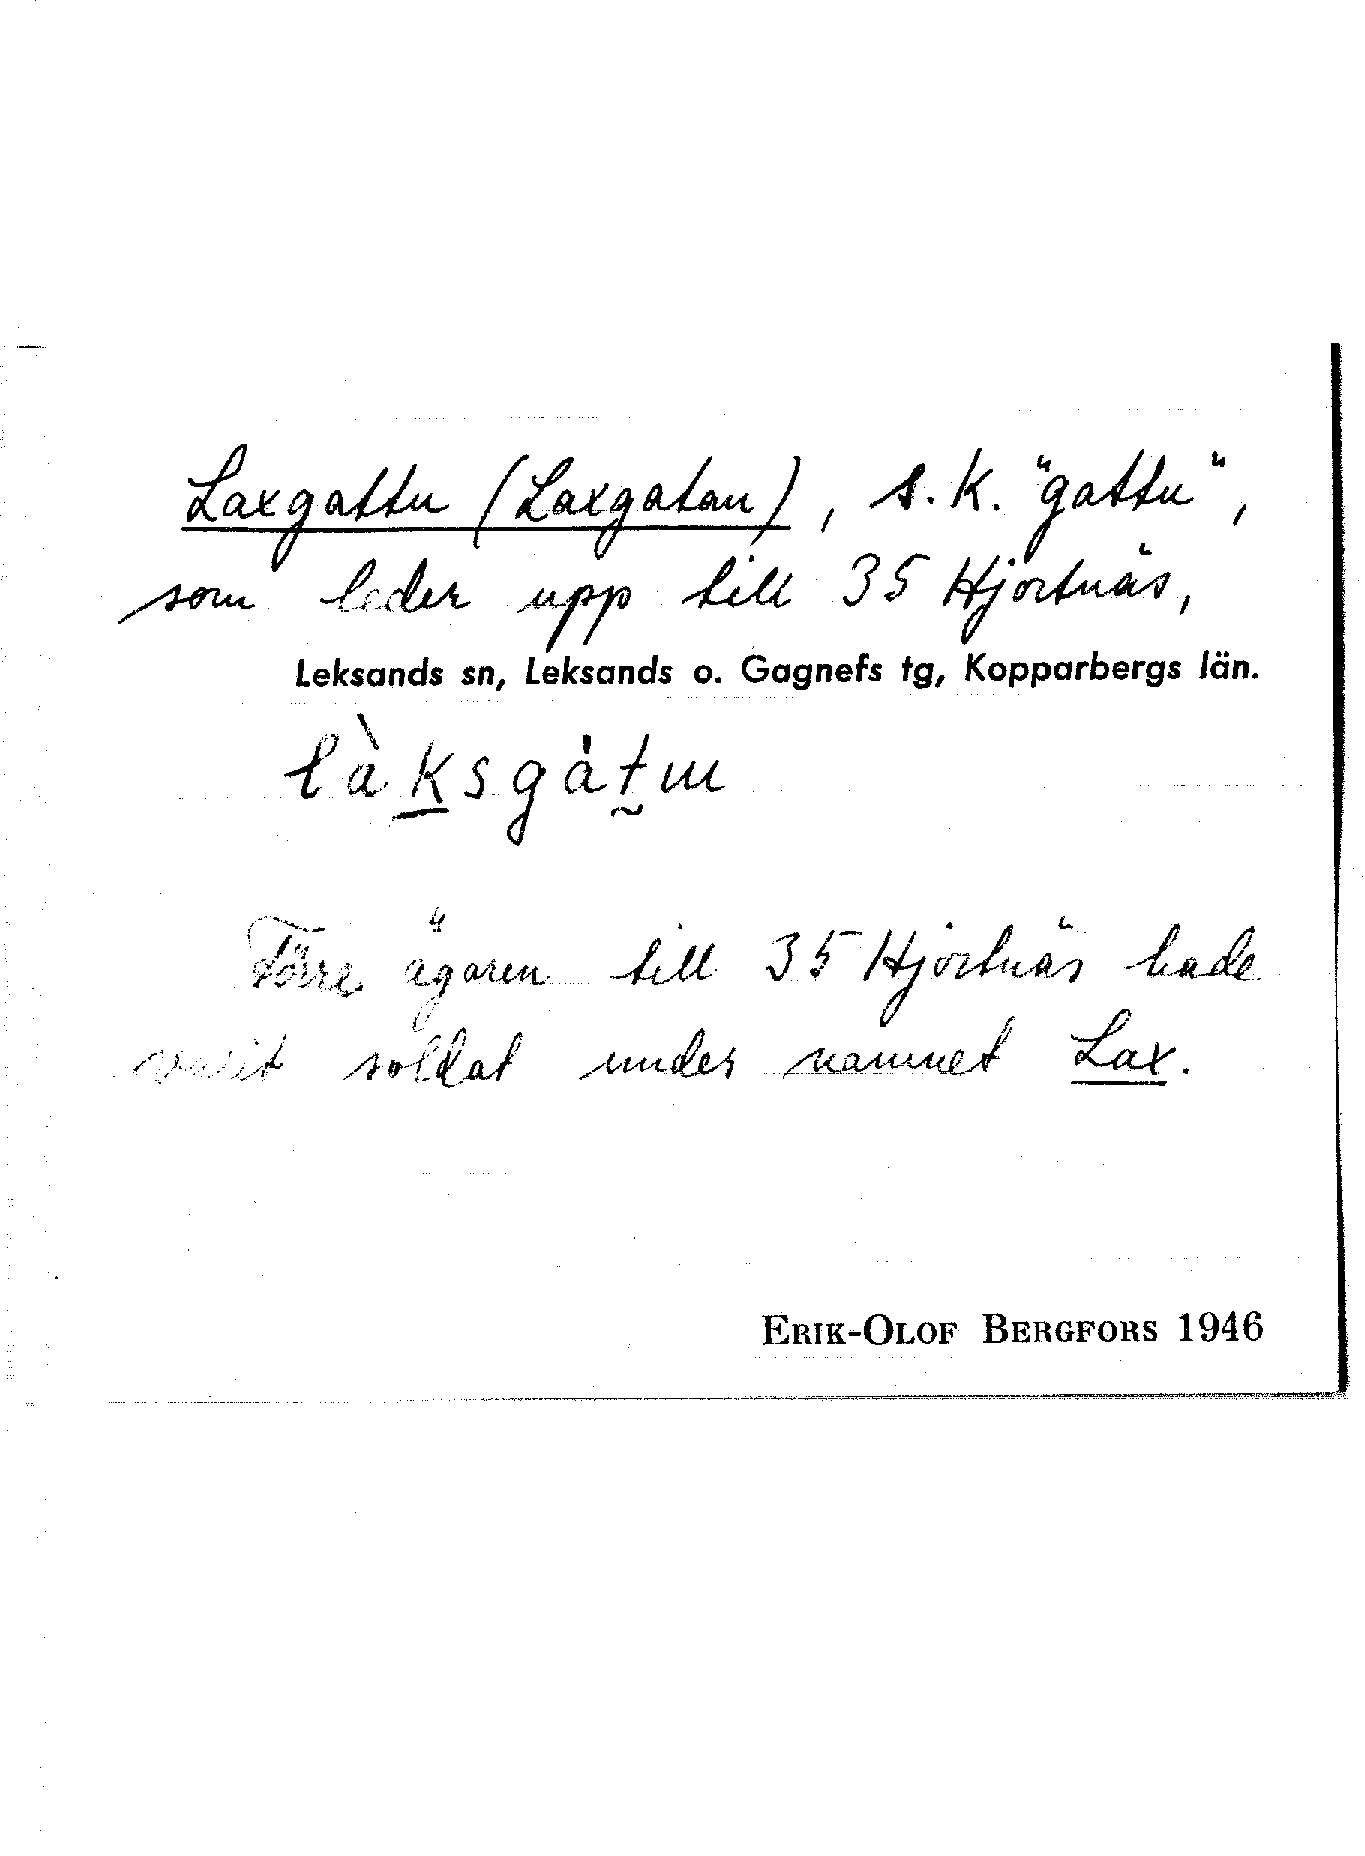 Laxgattu (Laxgatan), s.k. "gattu",
som leder upp till 35 Hjortnäs,
Leksands sn, Leksands o. Gagnefs tg, Kopparbergs län.
làk̲sgȧt̰ɯ
Förre ägaren till 35 Hjortnäs hade
varit soldat under namnet Lax.
ERIK-OLOF BERGFORS 1946